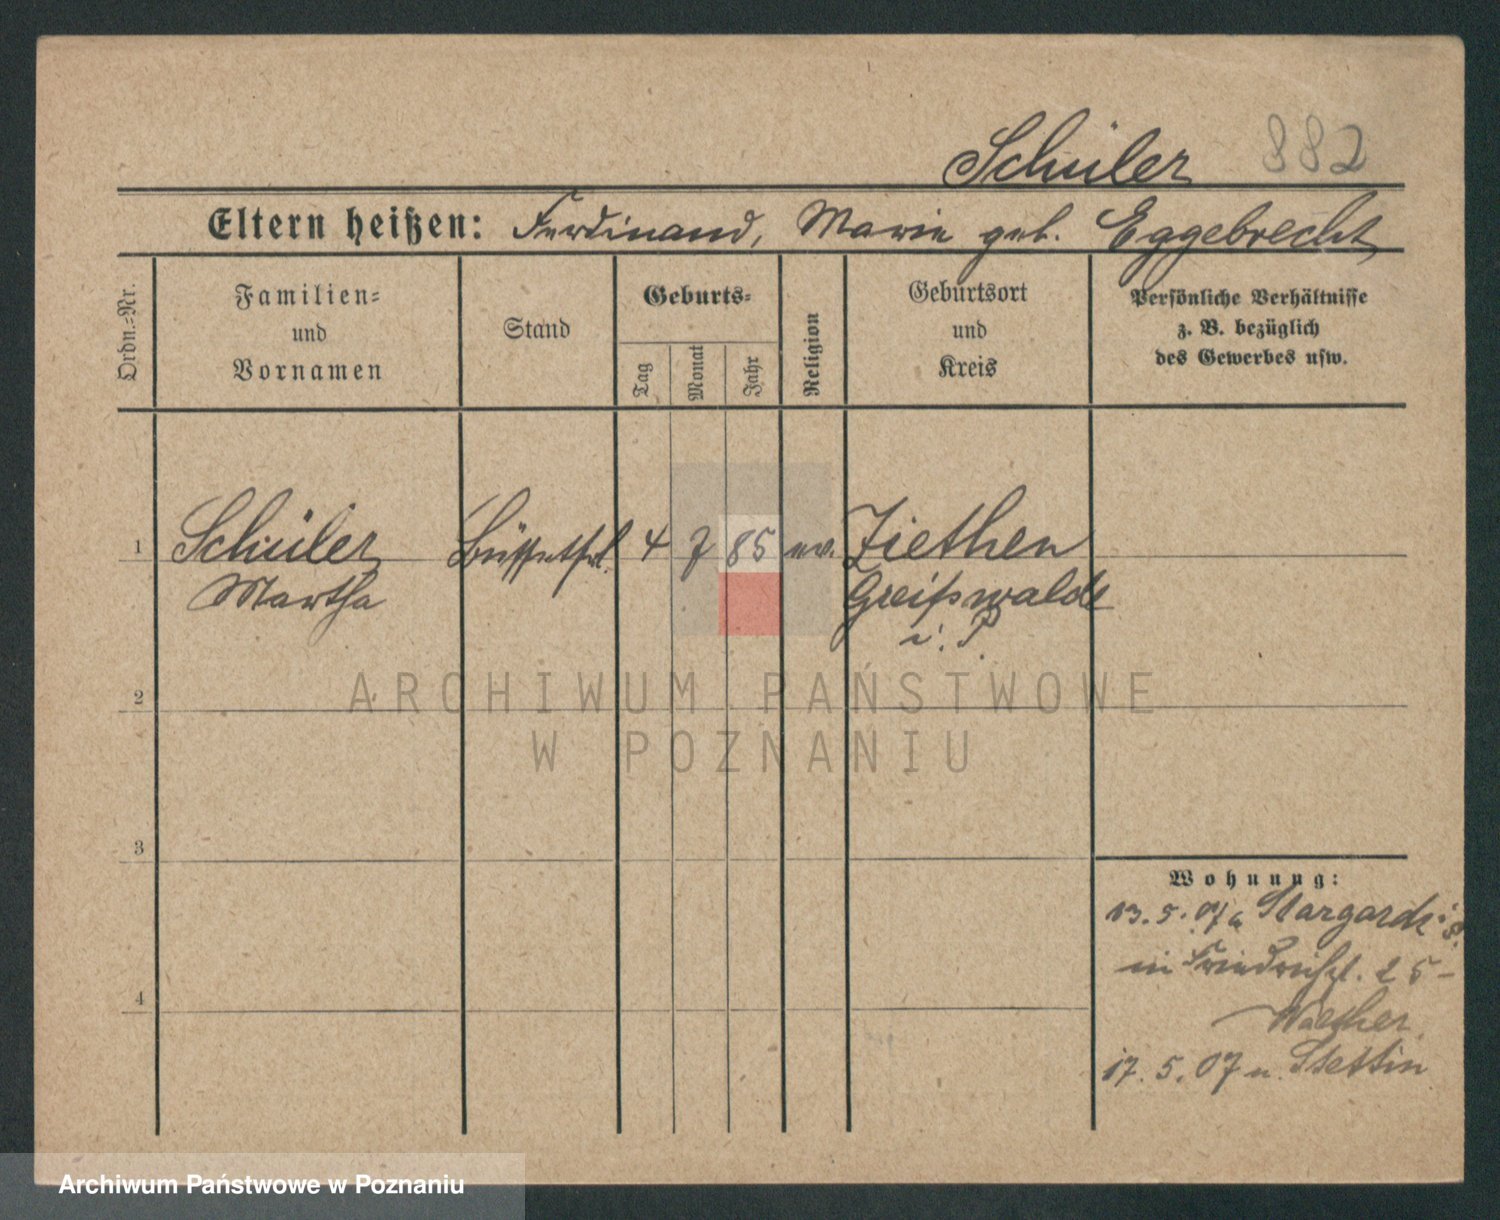 Schüler 882
Eltern heißen: Ferdinand, Marie geb. Eggebrecht
Ordn.-Nr.
Familien-
und
Vornamen
Stand
Geburts-
Tag
Monat
Jahr
Religion
Geburtsort
und
Kreis
Persönliche Verhältnisse
z. B. bezüglich
des Gewerbes usw.
1 Schüler Büffetfrl. 4 7 85 ev. Ziethen
Martha Greifswalde
i. P.
2
3
4
Wohnung:
13.5.07 a Stargard i. P.
in Friedrichst. 25 -
Walther
17.5.07 n. Stettin
ARCHIWUM PAŃSTWOWE
W POZNANIU
Archiwum Państwowe w Poznaniu